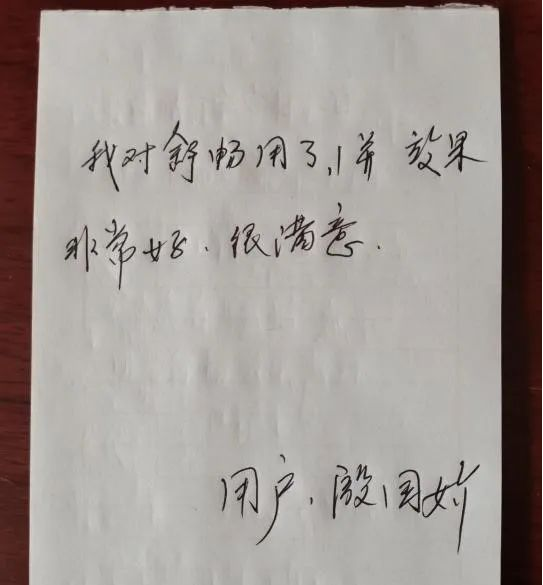 我对舒畅用了,1并 效果
非常好.很满意.
用户.殷国娇